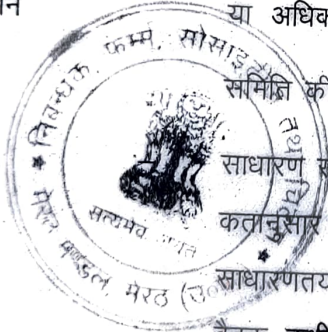 न
या अधिक
समिति की
साधारण स
कतानुसार
साधारणतय
निबन्धक, फर्म्स, सोसाइ
तथा
मेरठ मण्डल, मेरठ (उ०
सत्यमेव जयते